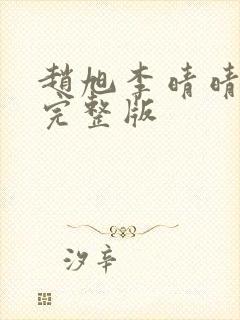 趙旭李晴晴
完整版
汐辛